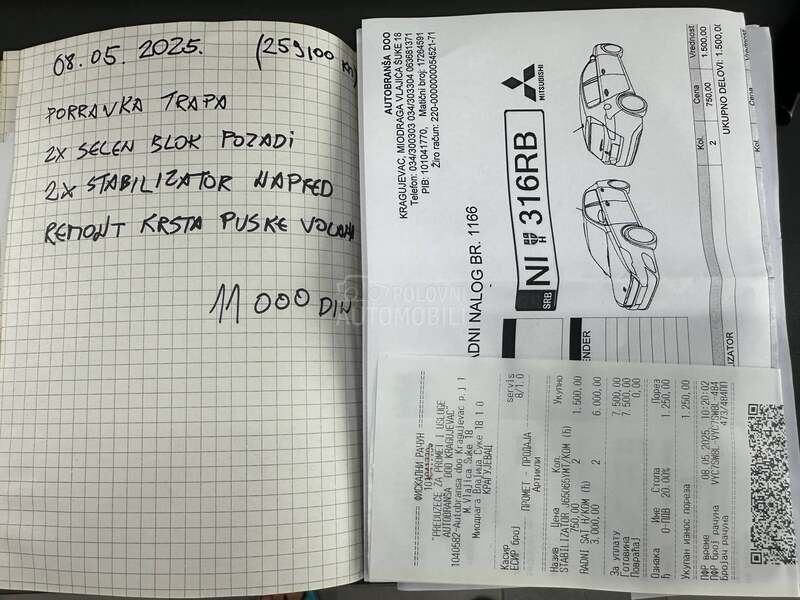 08.05.2025. (259100 km)
POPRAVKA TRAPA
2X SELEN BLOK POZADI
2X STABILIZATOR NAPRED
REMONT KRSTA PUSKE VOLANA
11 000 DIN
POLOVNI
AUTOMOBILI
AUTOBRANŠA DOO
KRAGUJEVAC, MIODRAGA VLAJIĆA ŠUKE 18
Telefon: 034/300303 034/303304 063681371
PIB: 101041770, Matični broj: 17264591
Žiro račun: 220-0000000054521-71
ADNI NALOG BR. 1166
SRB NI 316RB
MITSUBISHI
Kol. Cena Vrednost
2 750,00 1.500,00
UKUPNO DELOVI: 1.500,0
Kol. Cena
ENDER
IZATOR
ФИСКАЛНИ РАЧУН
101041770
"PREDUZEĆE ZA PROMET I USLUGE
AUTOBRANŠA DOO KRAGUJEVAC"
1040582-Autobransa doo Kragujevac p.j 1
M.Vlajića Šuke 18
Миодрага Влајића Суке 18 1 0
КРАГУЈЕВАЦ
Касир servis
ЕСИР број 8/1.0
ПРОМЕТ - ПРОДАЈА
Артикли
Назив Цена Кол. Укупно
STABILIZATOR J65066YMT/KOM (Ђ)
750,00 2 1.500,00
RADNI SAT H/KOM (Ђ)
3.000,00 2 6.000,00
За уплату 7.500,00
Готовина 7.500,00
Повраћај 0,00
Ознака Име Стопа Порез
Ђ О-ПДВ 20,00% 1.250,00
Укупан износ пореза 1.250,00
ПФР време 08.05.2025. 10:20:02
ПФР број рачуна VYC75W8L-VYC75W8L-484
Бројач рачуна 473/484ПП